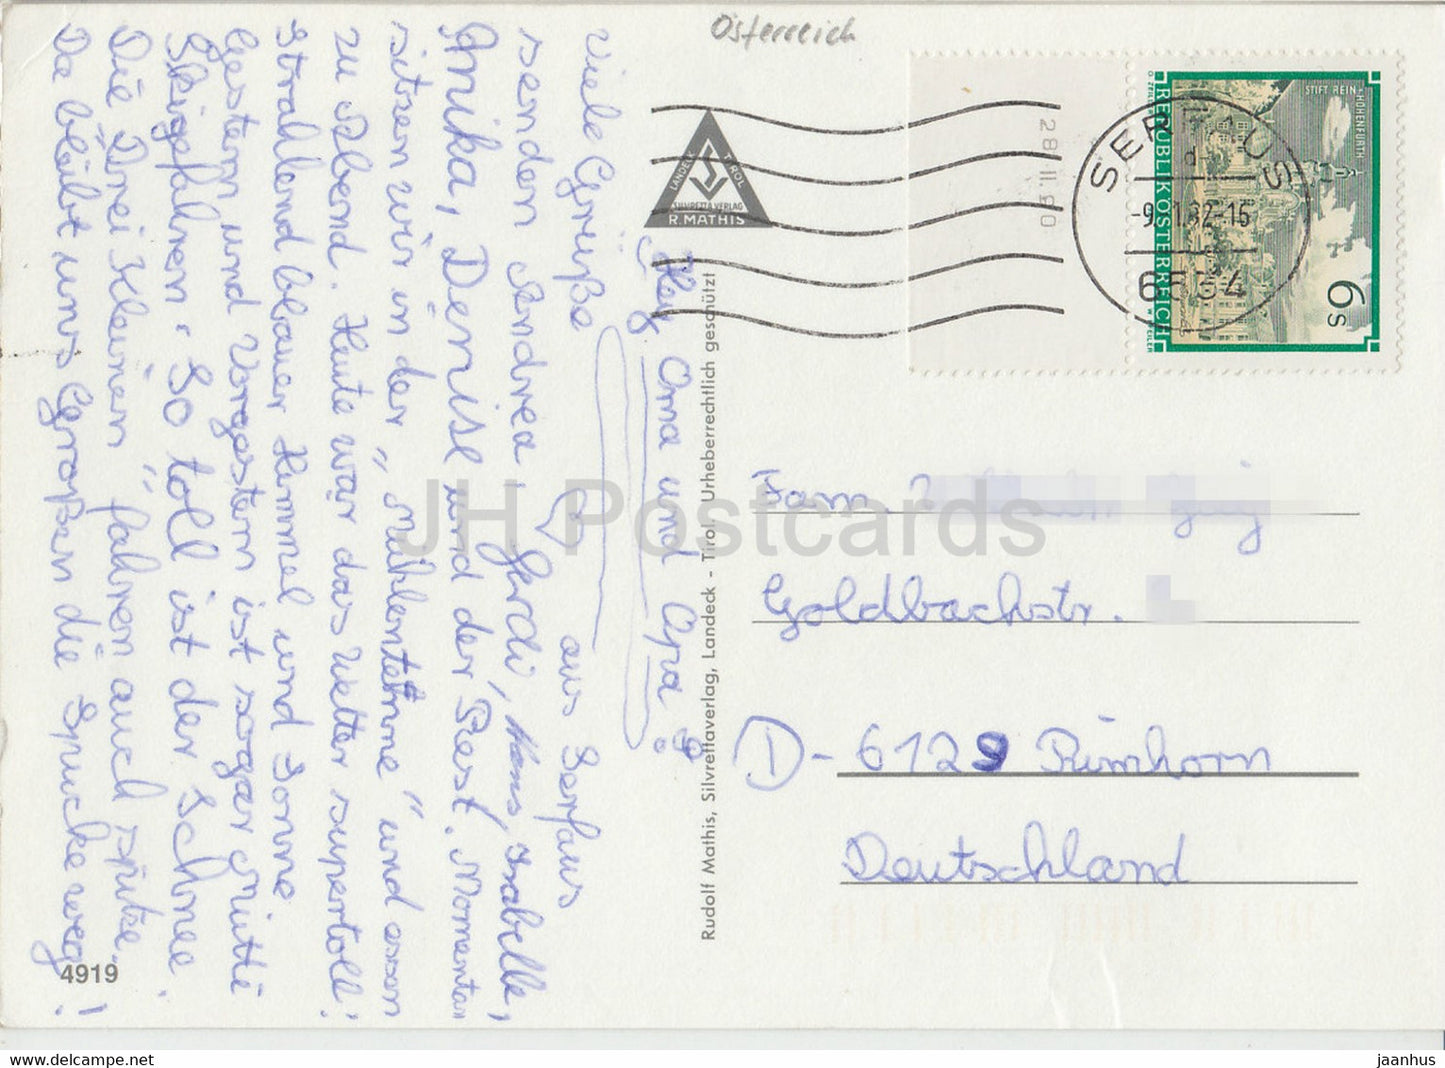 Österreich
Hey Oma und Opa!
Viele Grüße aus Serfaus
senden Andrea, Gerdi, Hans, Isabelle,
Annika, Denise und der Rest. Momentan
sitzen wir in der "Mühlentenne" und essen
zu Abend. Heute war das Wetter supertoll!
Strahlend blauer Himmel und Sonne.
Gestern und Vorgestern ist sogar Mutti
Skigefahren. So toll ist der Schnee.
Die "Drei Kleinen" fahren auch spitze.
Da bleibt uns Großen die Spucke weg!
4919
LANDECK TIROL
SILVRETTA VERLAG
R. MATHIS
Rudolf Mathis, Silvrettaverlag, Landeck - Tirol. Urheberrechtlich geschützt
28.II.90
SERFAUS
6534
REPUBLIK ÖSTERREICH
STIFT REIN-HOHENFURTH
6 S
Fam.
Goldbachstr.
D-6129 Rimhorn
Deutschland
JH Postcards
www.delcampe.net
jaanhus